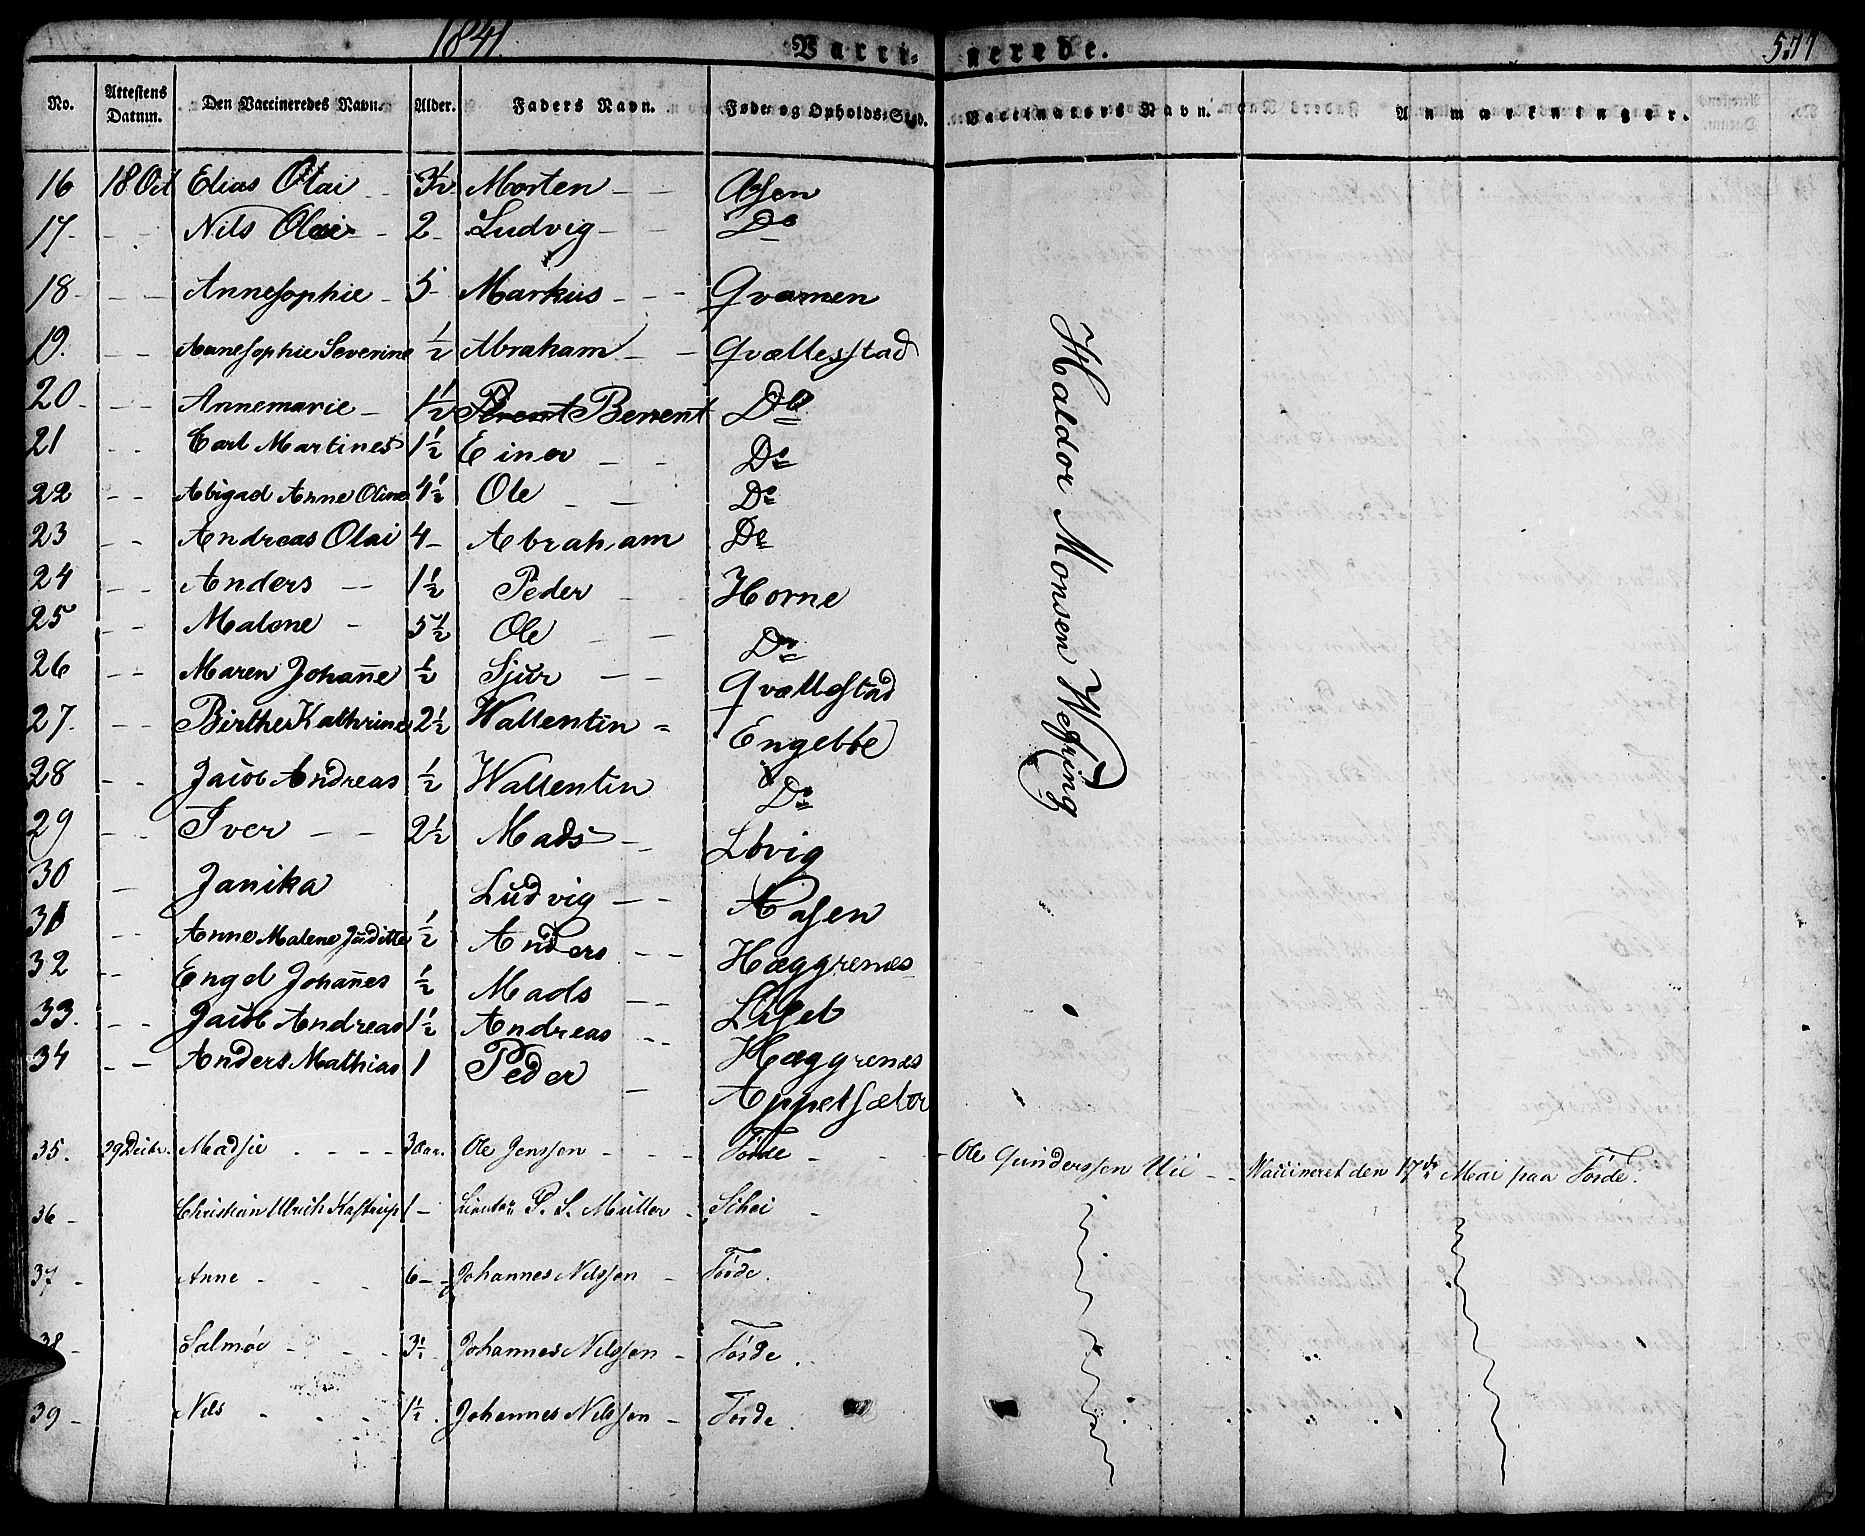 1841. Vacci- nerede. 577
No. Attestens Datum. Den Vaccineredes Navn. Alder. Faders Navn. Føde- og Opholds-Sted. Vaccinators Navn. Anmærkninger.
16 18 Oct Elias Olai - 3½ Morten - - Aasen
17 - - - Nils Olai - - 2 - Ludvig - - Do
18 - - - Annesophie - 5 - Markus - - - Qvamen
19. - - Annesophie Severine ½ Abraham - - Qvællesstad
20 - - - Annemarie - 1½ Berent Do
21 - - Carl Martines 1½ Einer - - Do
22 - - Abigad Anne Oline 4½ Ole - - Do
23 - - Andreas Olai 4 - Abraham Do
24 - - Anders - - 1½ Peder - - Horne
25 - - Malene - 5½ Ole - - Do
26 - - Maren Johan̄e ½ Sjur - - Qvællestad
27. - - Birthe Kathrine 2½ Wallentin = Engebbe
28 - - Jacob Andreas ½ Wallentin Do
29 - - Iver - - 2½ Mads - - Lövig
30 - Janika Ludvig - - Aasen
31 - - Anne Malene Juditte ½ Anders - - Hæggrenes
32 - - Engel Johan̄es ½ Mads - -
33. - - Jacob Andreas 1½ Andreas - - Hæggrenes
34 - - Anders Mathias 1 Peder -
Haldor Monsen Wefring
35. 29 Decbr. Madsie - - - - 3 Aar. Ole Jenssen - - - - Förde - - - Ole Gunderssen - - Vaccineret den 17de Mai paa Förde.
36 - Christian Ulrich Kastrup 1 - P. S. Müller - Schei -
37 - Anne - - - 6 - - Johannes Nilssen - Förde.
38 - Salmöe - - - 3½ Johannes Nilssen - Förde.
39 - Nils - - - - 1½. Johannes Nilssen - Förde.